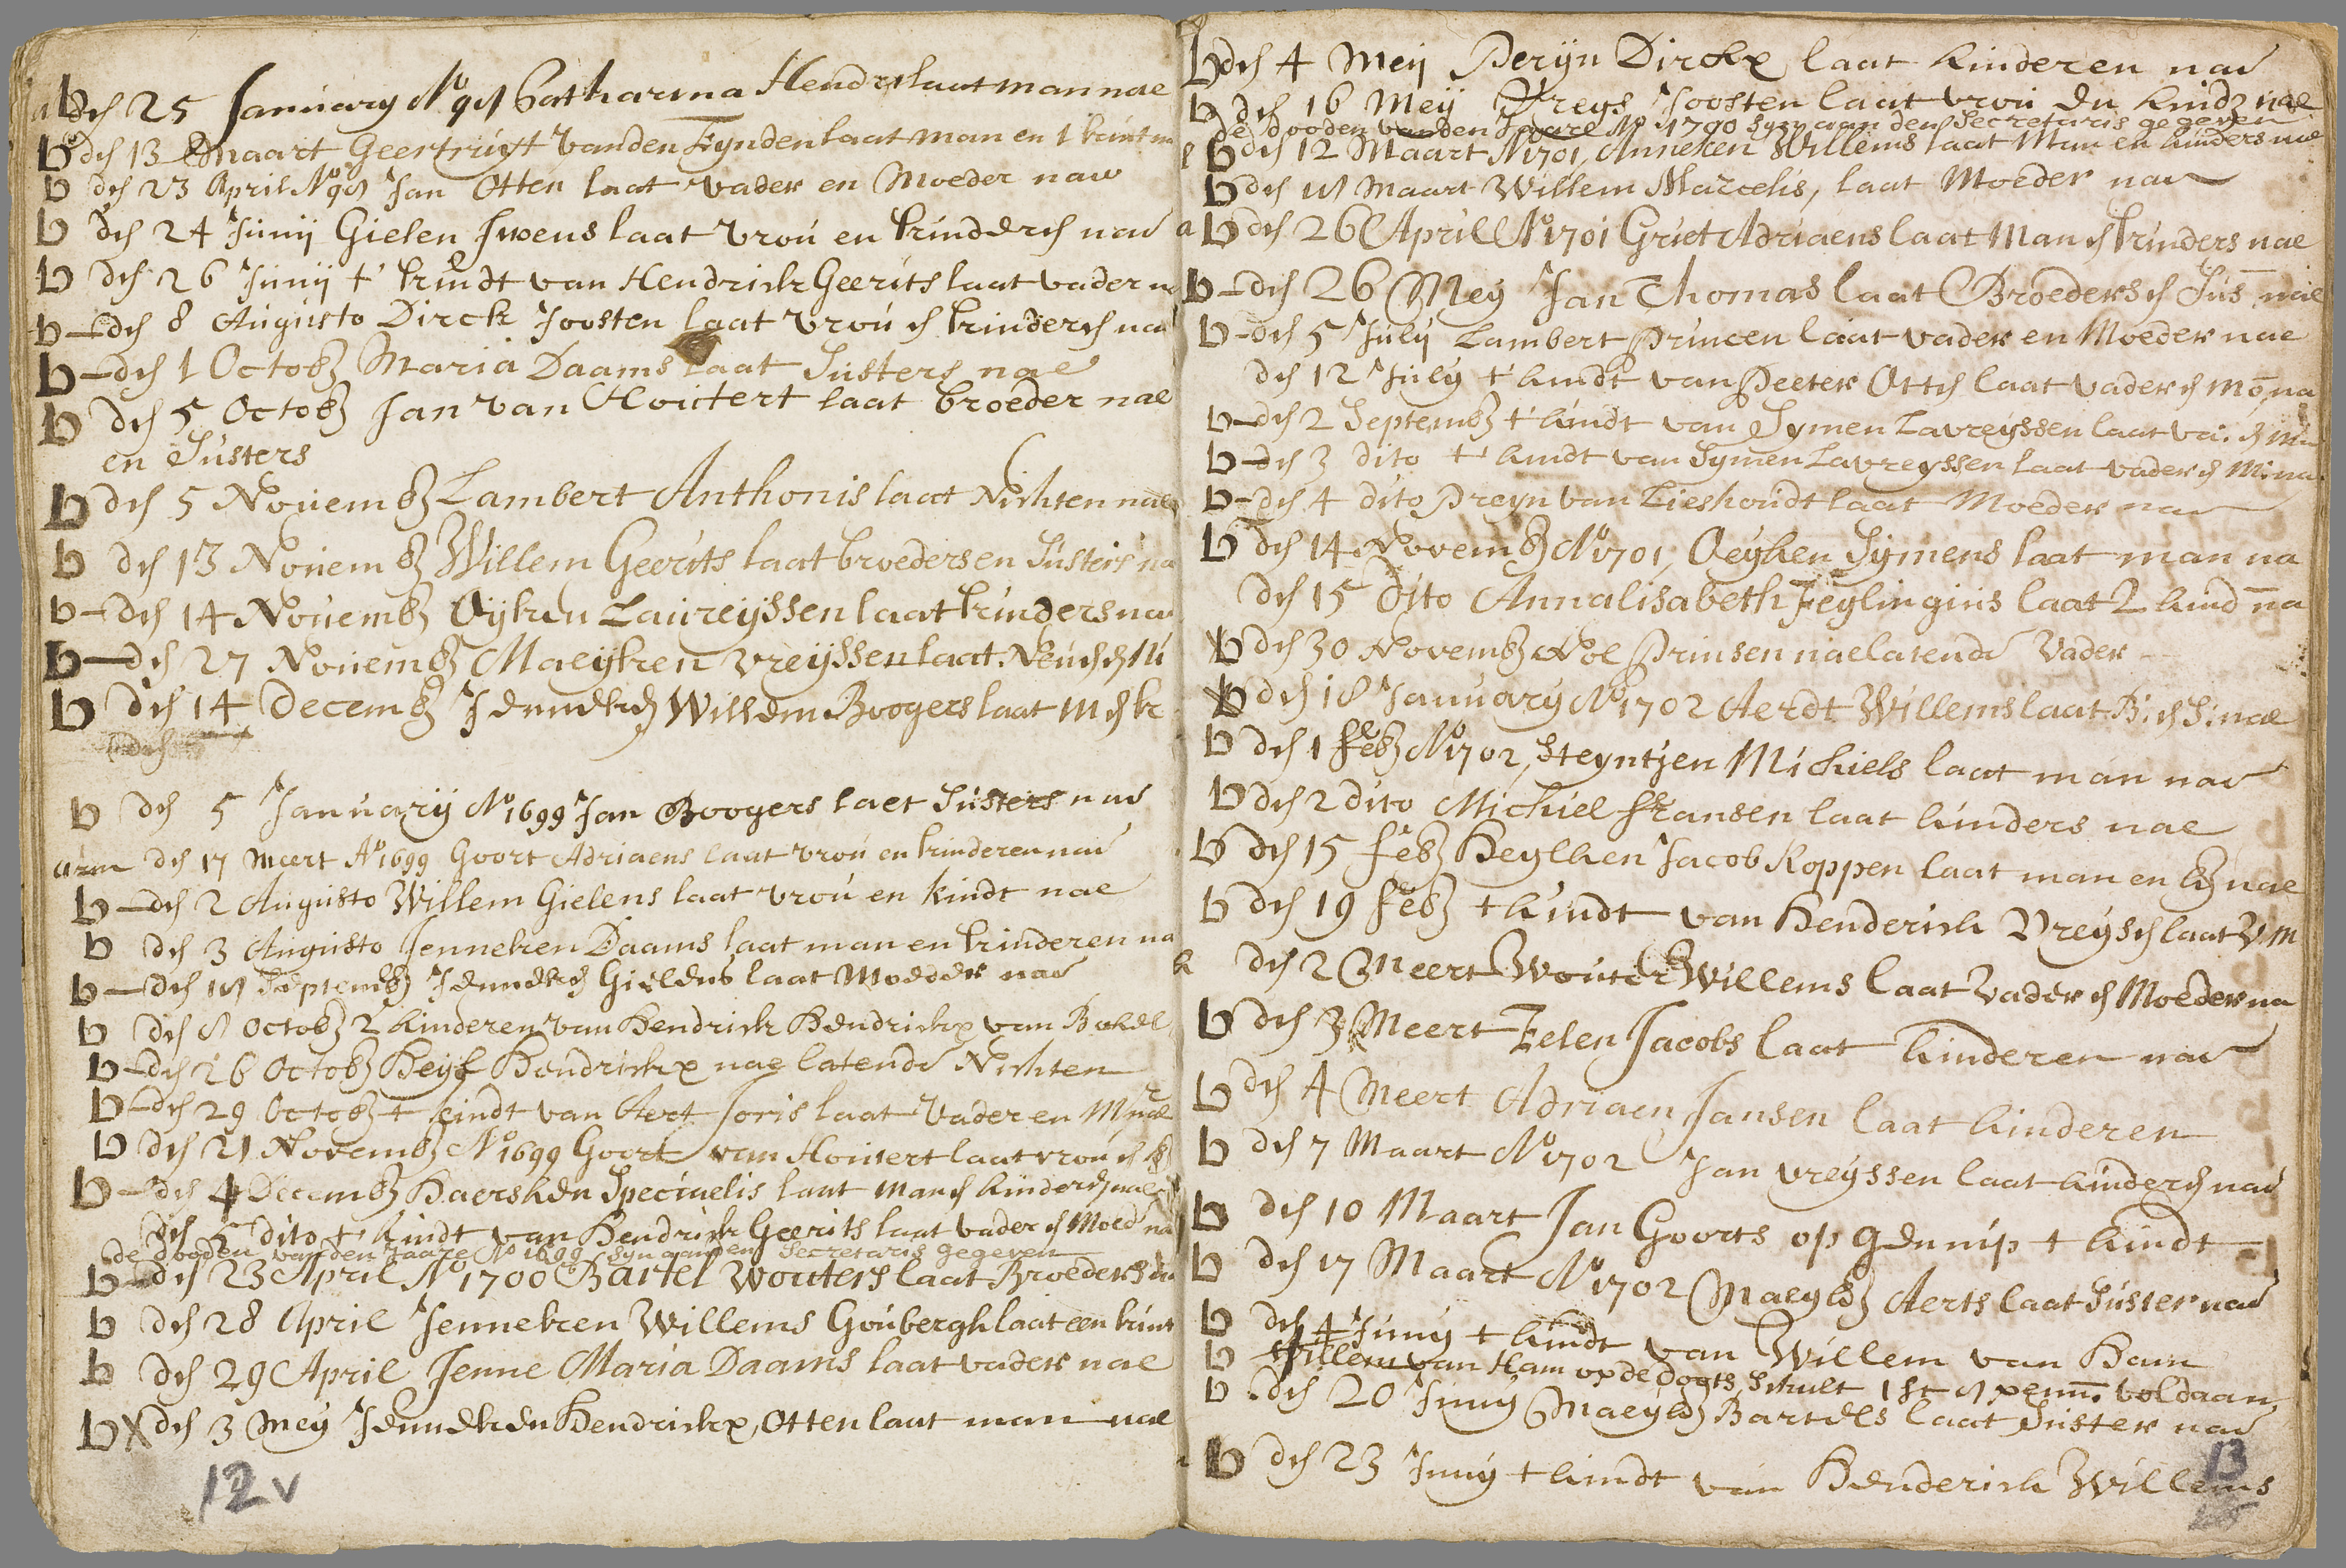 a b den 25 January Ao 98 Catharina Hendr laat man nae
b den 13 Maart Geertruijt vanden Eynden laat man en 1 kint
b den 23 April Ao 98 Jan Otten laat vader en Moeder nae
b den 24 Junij Gielen Swens laat vrou en kinderen nae
b den 26 Junij t' kindt van Hendrick Geerits laat vader
b den 8 Augusto Dirck Joosten laat vrou en kinderen na
b den 1 Octob Maria Daams laat Susters nae
b den 5 Octob Jan van Houtert laat broeder nae
en Susters
b den 5 Novemb Lambert Anthonis laat Nichten nae
b den 13 Novemb Willem Geerits laat broeders en Susters na
b den 14 Novemb Oyken Laureijssen laat kinders na
b den 27 Novemb Maeijken Vreijssen laat
b den 14 Decemb Jenneken Willem Boogers laat M en k
den
b den 5 Januarij Ao 1699 Jan Boogers laet Susters nae
arm den 17 Meert Ao 1699 Goort Adriaens laat vrou en kinderen nae
b den 2 Augusto Willem Gielens laat vrou en kindt nae
b den 3 Augusto Jenneken Daams laat man en kinderen na
b den 18 Septemb Jenneken Gielens laat Moeder nae
b den 8 Octob 2 kinderen van Hendrick Hendrickx van Bokel
b den 26 Octob Heijl Hendrickx nae latende Nichten
b den 29 Octob t kindt van Aert Joris laat Vader en M nae
b den 21 Novemb Ao 1699 Goort van Houtert laat vrou en k
b den 4 Decemb Haersken Specinelis laat man en kinderen nae
den 5 dito t' kindt van Hendrick Geerits laat vader en Moed na
de dooden van den Jaare Ao 1699 syn aan den Secretaris gegeven
b den 23 April Ao 1700 Bartel Wouters laat Broeders
b den 28 April Jenneken Willems Goubergh laat een kint
b den 29 April Jenne Maria Daams laat vader nae
b X den 3 Mey Jenneken Hendrickx, Otten laat man nae
12v
b den 4 Meij Peryn Dirckx laat kinderen nae
b den 16 Meij Dreys Joosten laat vrou en kind nae
de dooden van den Jaare Ao 1700 syn aan den Secretaris gegeven
b den 12 Maart Ao 1701, Anneken Willems laat Man en kinders nae
b den 18 Maart Willem Marcelis, laat Moeder nae
a b den 26 Aprill Ao 1701 Griet Adriaens laat Man en kinders nae
b den 26 Mey Jan Thomas laat Broeders en Sus nae
b den 5 July Lambert Princen laat vader en Moeder nae
den 12 July t' kindt van Peeter Otten laat vader en Mo, na
b den 2 Septemb t' kindt van Symen Lavreyssen laat va. en
b den 3 dito t' kindt van Symen Lavreyssen laat vader en M: na
b den 4 dito Preyn van Lieshoudt laat Moeder nae
b den 14 Novemb Ao 1701, Oeyken Sijmens laat man na
den 15 Dito Annalisabeth Feylingius laat 2 kind na
b den 30 Novemb Noe Prinsen naelatende Vader
b den 18 January Ao 1702 Aerdt Willems laat B: en S: nae
b den 1 Feb Ao 1702, Steyntjen Michiels laat man nae
b den 2 dito Michiel Fransen laat kinders nae
b den 15 Feb Heylken Jacob Koppen laat man en k nae
b den 19 Feb t kindt van Henderick Vreysen laat V M
den 2 Meert Wouter Willems laat Vader en Moeder na
b den 3 Meert Eelen Jacobs laat kinderen nae
b den 4 Meert Adriaen Jansen laat kinderen
b den 7 Maart Ao 1702 Jan Vreyssen laat kinderen nae
b den 10 Maart Jan Goorts op Gennip t kindt
b den 17 Maart Ao 1702 Maeyke Aerts laat Suster nae
b den 4 Juny t kindt van Willem van Ham
b Willem van Ham op de Dogts Schult 1 st 8 penn. voldaan
b den 20 Juny Maeyke Bartels laat Suster nae
b den 23 Juny t kindt van Henderick Willems
13